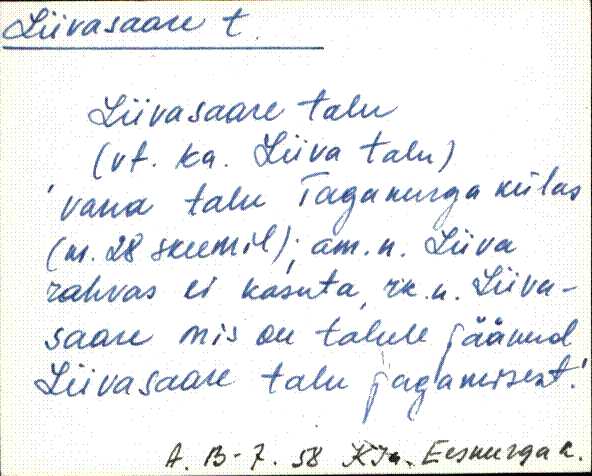 Liivasaare t.
Liivasaare talu
(vt. ka. Liiva talu)
'vana talu Taganurga külas
(m. 28 skeemil); am. n. Liiva
rahvas ei kasuta, rk. n. Liiva-
saare mis on talule jäänud
Liivasaare talu jagamisest.'
A. B-7. 58 KJn. Eesnurga k.